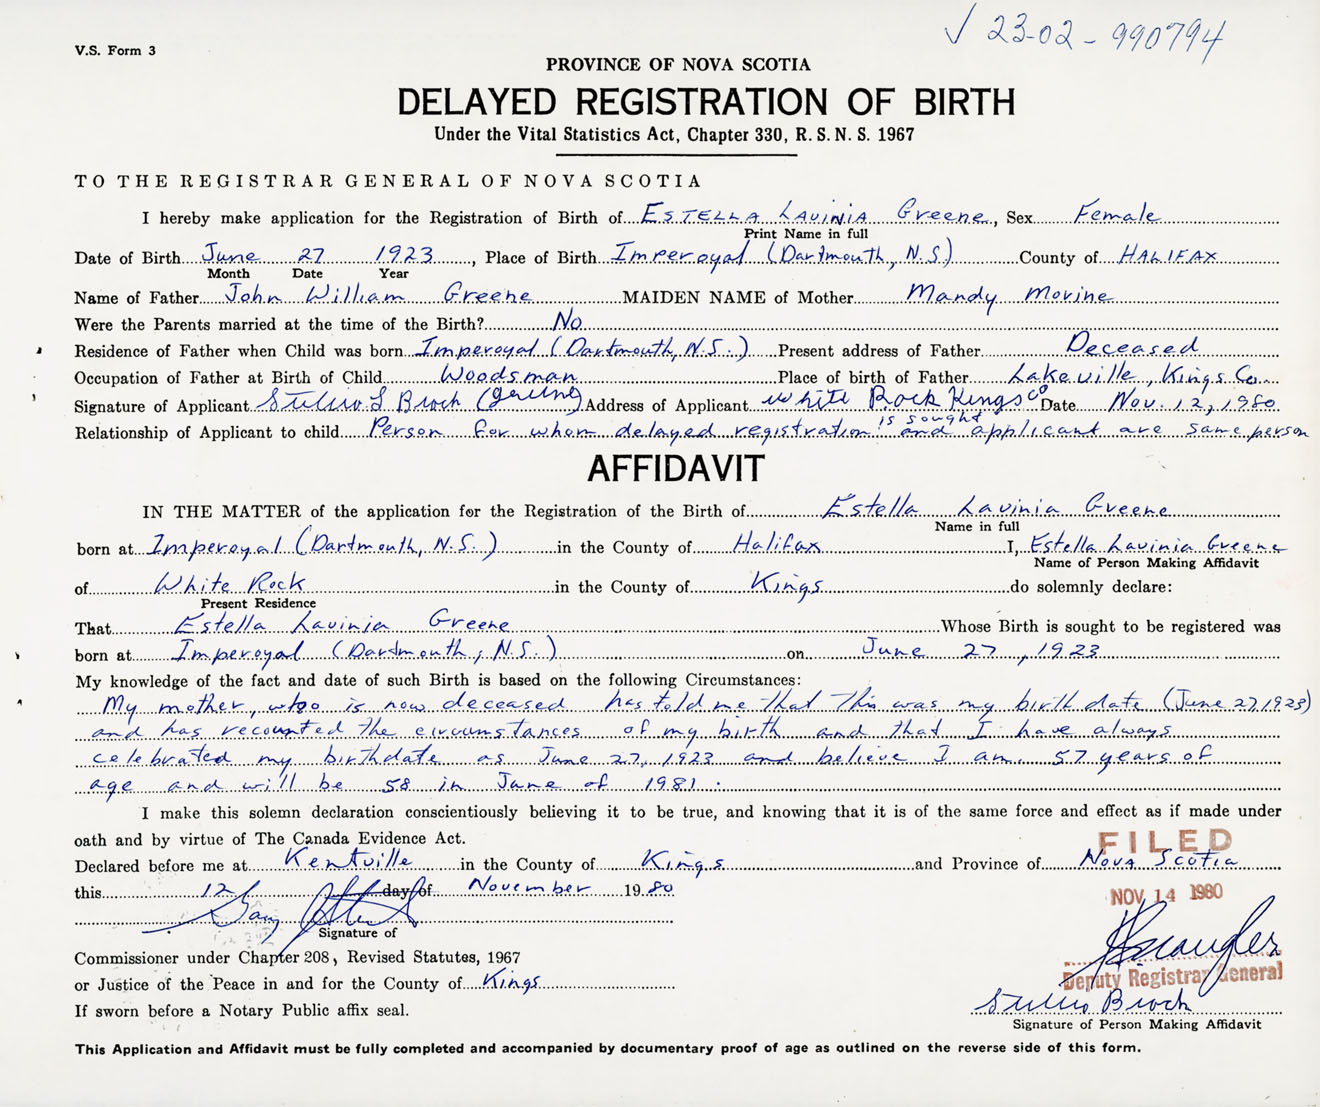 ✓ 23-02-990794
V.S. Form 3
PROVINCE OF NOVA SCOTIA
DELAYED REGISTRATION OF BIRTH
Under the Vital Statistics Act, Chapter 330, R.S.N.S. 1967
TO THE REGISTRAR GENERAL OF NOVA SCOTIA
I hereby make application for the Registration of Birth of ESTELLA LAVINIA Greene, Sex Female
Print Name in full
Date of Birth June 27 1923, Place of Birth Imperoyal (Dartmouth, N.S.) County of HALIFAX
Month Date Year
Name of Father John William Greene MAIDEN NAME of Mother Mandy Morine
Were the Parents married at the time of the Birth? No
Residence of Father when Child was born Imperoyal (Dartmouth, N.S.) Present address of Father Deceased
Occupation of Father at Birth of Child Woodsman Place of birth of Father Lakeville, Kings Co.
Signature of Applicant Address of Applicant White Rock Kings Co Date Nov. 12, 1980
Relationship of Applicant to child Person for whom delayed registration is sought and applicant are same person
AFFIDAVIT
IN THE MATTER of the application for the Registration of the Birth of Estella Lavinia Greene
Name in full
born at Imperoyal (Dartmouth, N.S.) in the County of Halifax I, Estella Lavinia Greene
Name of Person Making Affidavit
of White Rock in the County of Kings do solemnly declare:
Present Residence
That Estella Lavinia Greene Whose Birth is sought to be registered was
born at Imperoyal (Dartmouth, N.S.) on June 27, 1923
My knowledge of the fact and date of such Birth is based on the following Circumstances:
My mother, who is now deceased has told me that this was my birth date (June 27, 1923)
and has recounted the circumstances of my birth and that I have always
celebrated my birthdate as June 27, 1923 and believe I am 57 years of
age and will be 58 in June of 1981.
I make this solemn declaration conscientiously believing it to be true, and knowing that it is of the same force and effect as if made under
oath and by virtue of The Canada Evidence Act.
FILED
Declared before me at Kentville in the County of Kings and Province of Nova Scotia
this 12 day of November 1980
NOV 14 1980
Signature of
Commissioner under Chapter 208, Revised Statutes, 1967
Deputy Registrar General
or Justice of the Peace in and for the County of Kings
If sworn before a Notary Public affix seal.
Signature of Person Making Affidavit
This Application and Affidavit must be fully completed and accompanied by documentary proof of age as outlined on the reverse side of this form.